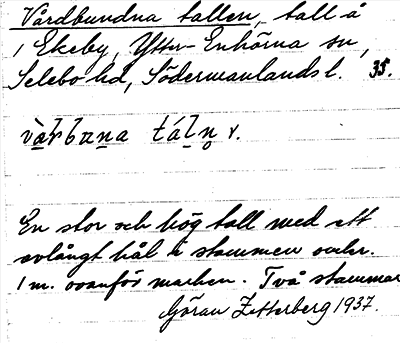 Vårdbundna tallen, tall å
1 Ekeby, Ytter-Enhörna sn,
Selebo hd, Södermanlands l. 35.
v.
En stor och hög tall med ett
avlångt hål i stammen omkr.
1 m. ovanför marken. Två stammar
Göran Zetterberg 1937.